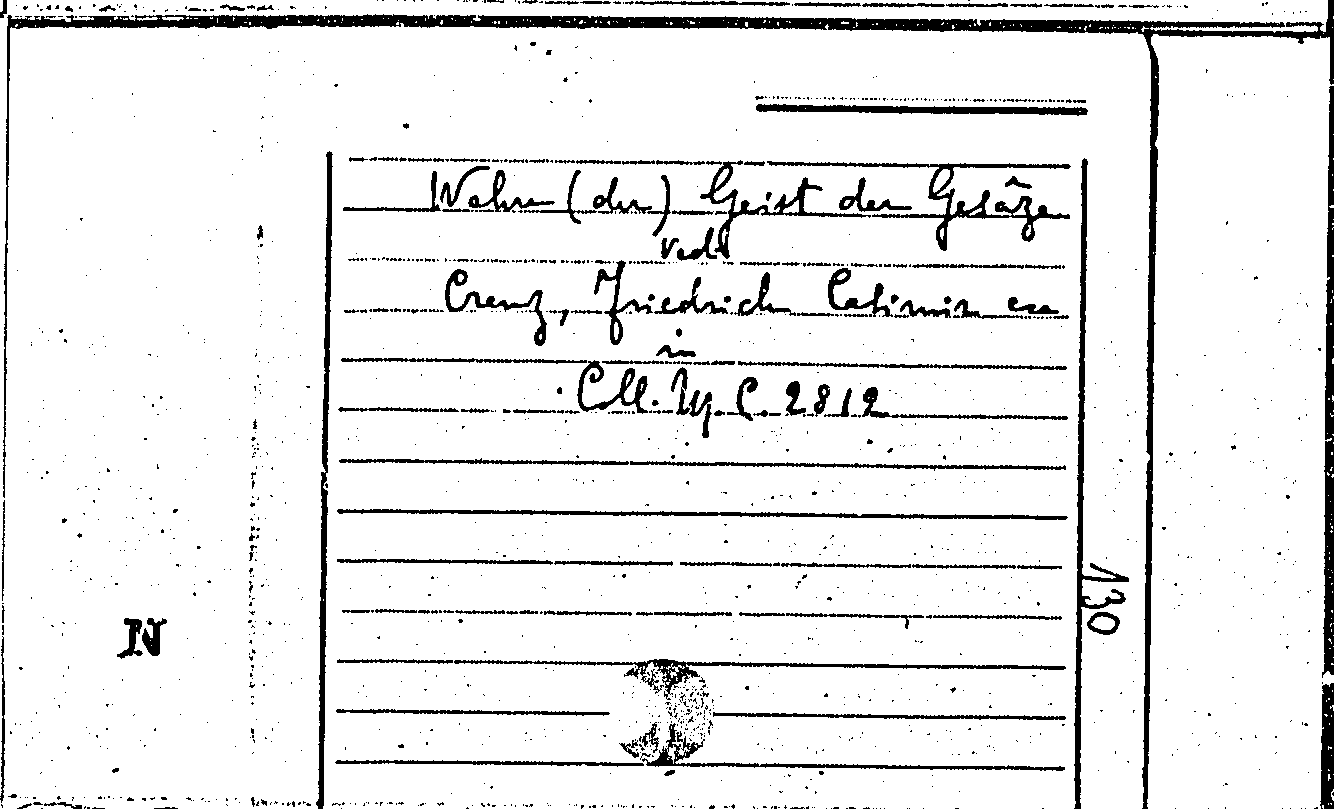 Wahre (der) Geist der Gesäze
vedi
Creuz, Friedrich Casimir
in
Coll. It. C. 2812
130
N